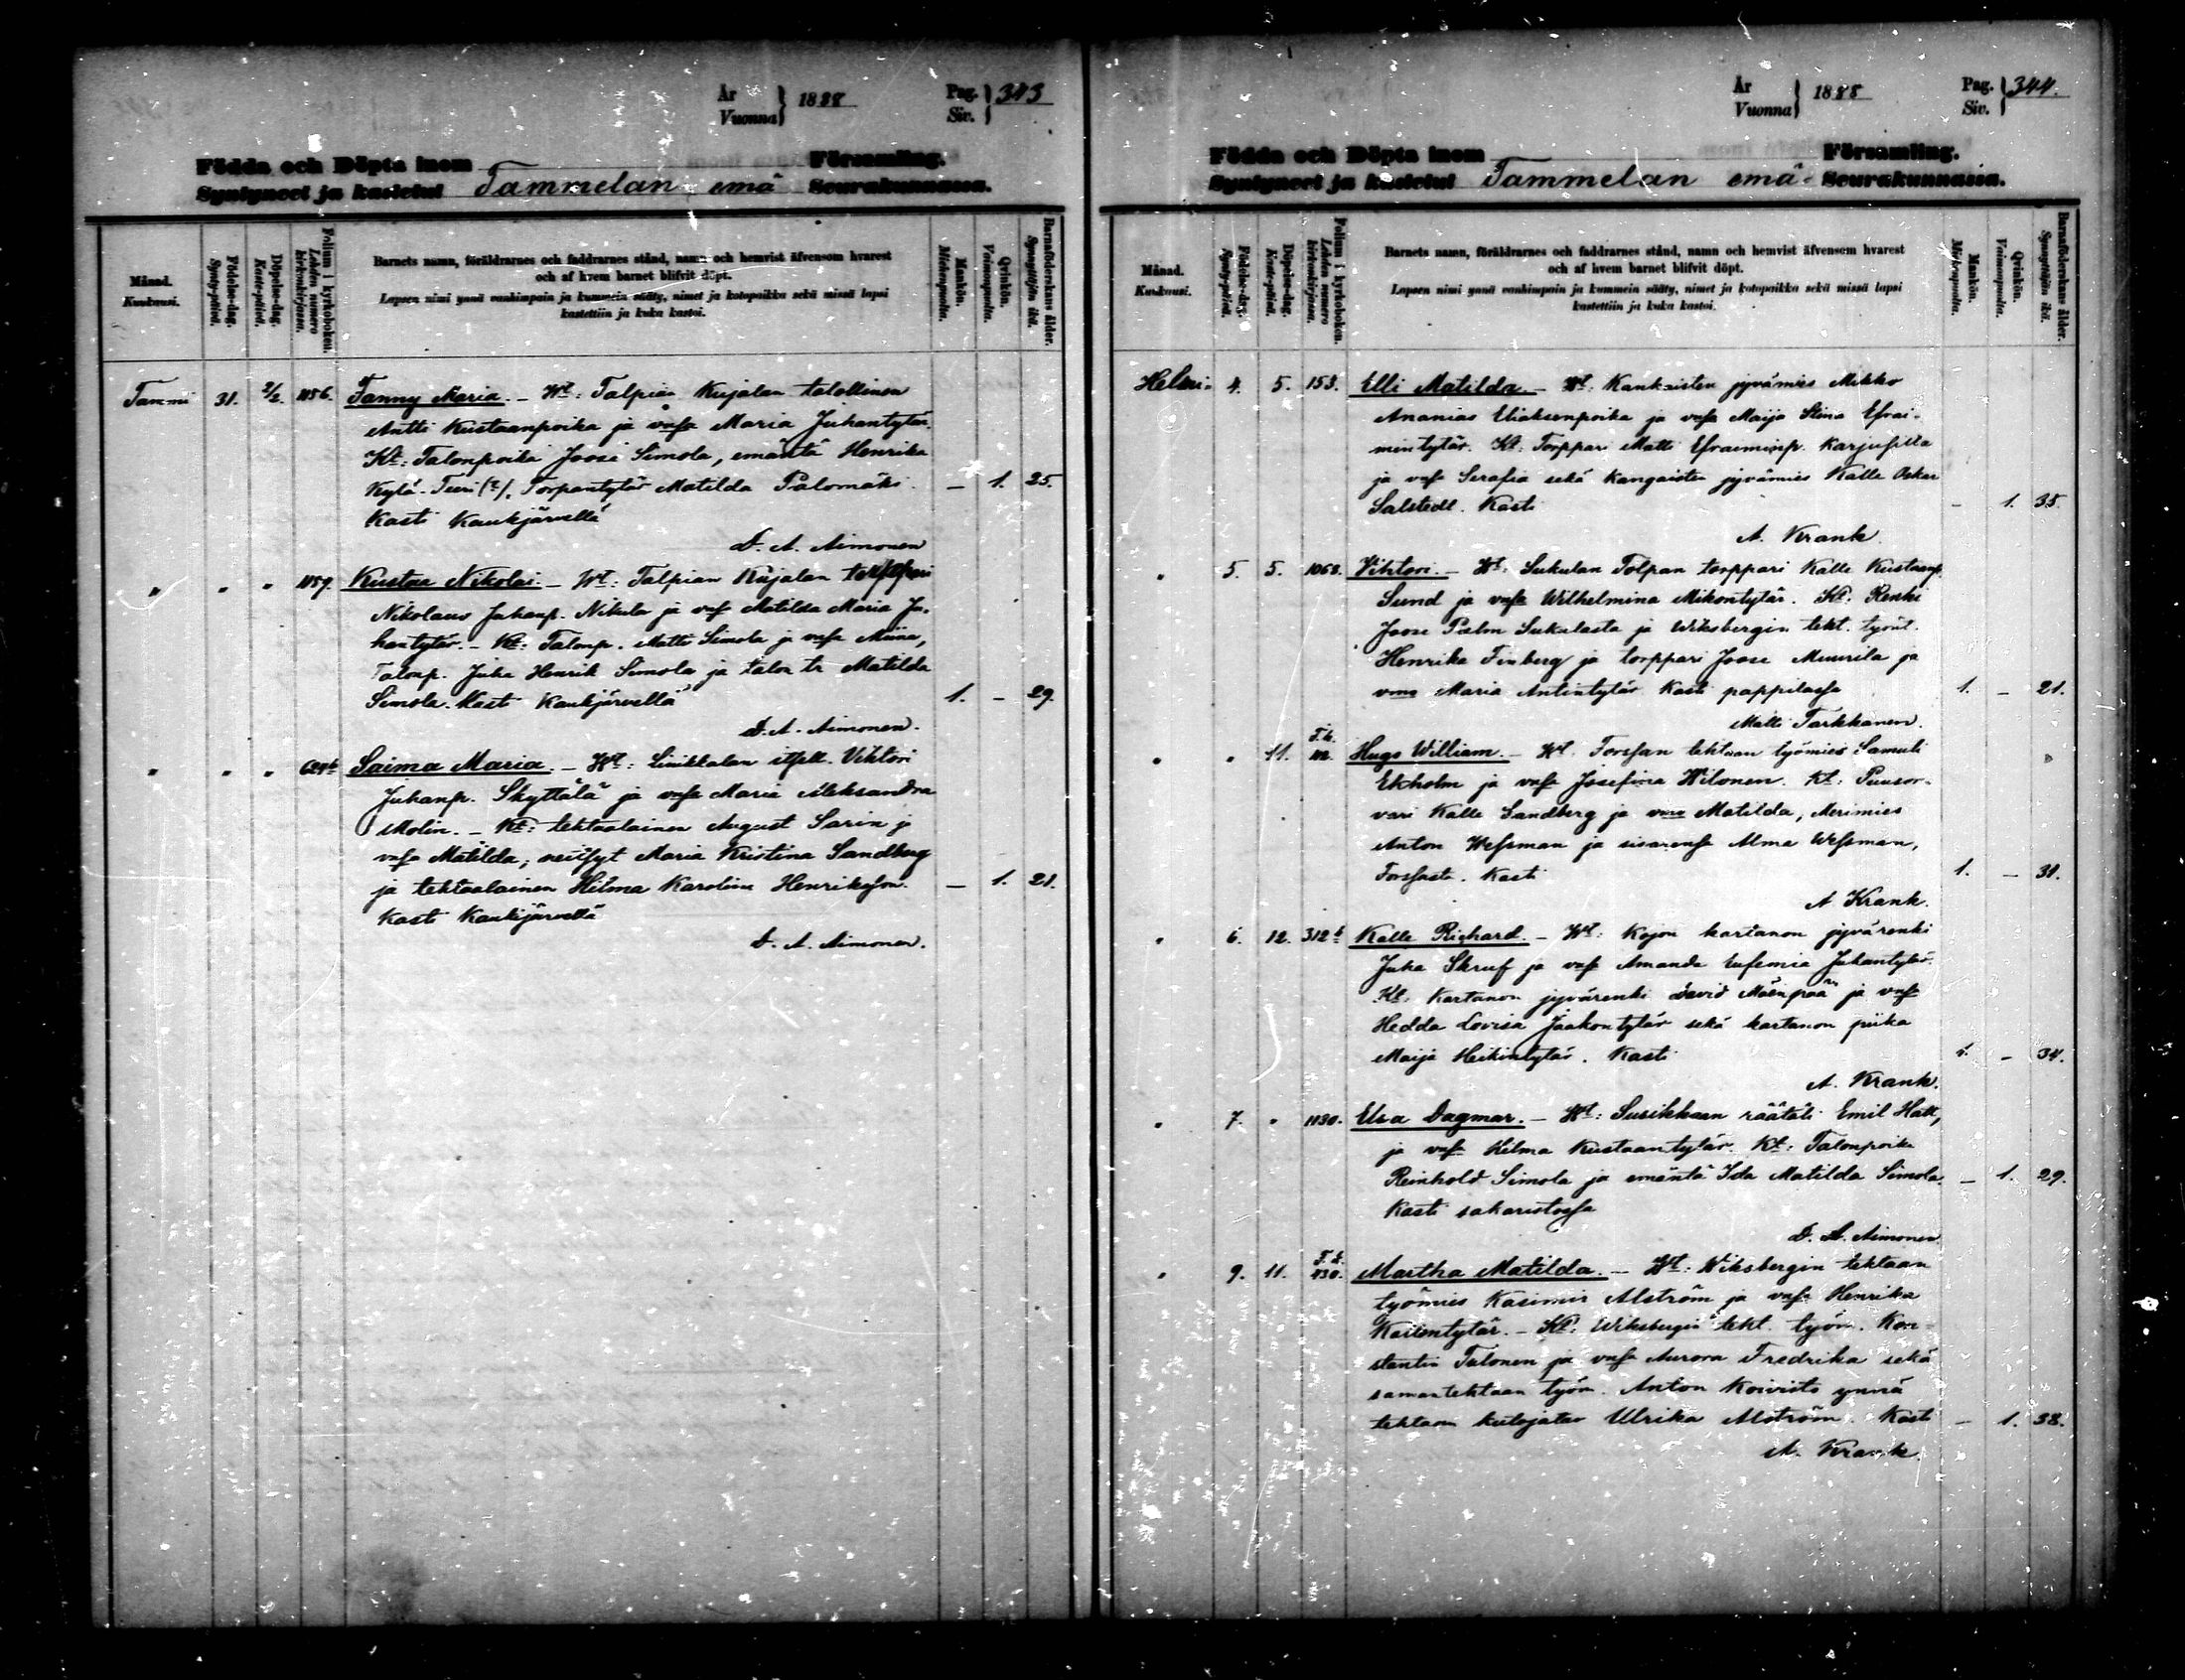 År
Vuonna
1888
Pag.
Siv.
343
Födda och Döpta inom Församling.
Syntyneet ja kastetut Tammelan emä Seurakunnassa.
Månad.
Kuukausi.
Födelse-dag.
Synty-päivä.
Döpelse-dag.
Kaste-päivä.
Folium i kyrkoboken.
Lehden numero kirkonkirjassa.
Barnets namn, föräldrarnes och faddrarnes stånd, namn och hemvist äfvensom hvarest
och af hvem barnet blifvit döpt.
Lapsen nimi ynnä vanhimpain ja kummein sääty, nimet ja kotopaikka sekä missä lapsi
kastettiin ja kuka kastoi.
Mankön.
Miehenpuolia.
Qvinkön.
Vaimonpuolia.
Barnaföderskans ålder.
Synnyttäjän ikä.
Tammi 31. 2/2. 1156. Fanny Maria. — Wt: Talpian Kujalan talollinen
Antti Kustaanpoika ja vmsa Maria Juhantytär.
Kt: Talonpoika Joose Simola, emäntä Henrika
Kylä-Teeri (?), Torpantytär Matilda Palomäki. — 1. 25.
Kasti Kaukjärvellä
D. A. Aimonen
" " " 1159. Kustaa Nikolai. — Wt: Talpian Kujalan torppari
Nikolaus Juhanp. Nikula ja vmsa Matilda Maria Ju-
hantytär. — Kt: Talonp. Matti Simola ja vmsa Miina,
Talonp. Juha Henrik Simola ja talon tr Matilda
Simola. Kasti Kaukjärvellä 1. — 29.
D. A. Aimonen.
" " " 624b Saima Maria. — Wt: Liesikkalan itsell. Vihtori
Juhanp. Skyttälä ja vmsa Maria Aleksandra
Molin. — Kt: tehtaalainen August Sarin ja
vmsa Matilda; neitsyt Maria Kristina Sandberg
ja tehtaalainen Hilma Karolina Henriksson. — 1. 21.
Kasti Kaukjärvellä
D. A. Aimonen.
År
Vuonna
1888
Pag.
Siv.
344.
Födda och Döpta inom Församling.
Syntyneet ja kastetut Tammelan emä- Seurakunnassa.
Månad.
Kuukausi.
Födelse-dag.
Synty-päivä.
Döpelse-dag.
Kaste-päivä.
Folium i kyrkoboken.
Lehden numero kirkonkirjassa.
Barnets namn, föräldrarnes och faddrarnes stånd, namn och hemvist äfvensom hvarest
och af hvem barnet blifvit döpt.
Lapsen nimi ynnä vanhimpain ja kummein sääty, nimet ja kotopaikka sekä missä lapsi
kastettiin ja kuka kastoi.
Mankön.
Miehenpuolia.
Qvinkön.
Vaimonpuolia.
Barnaföderskans ålder.
Synnyttäjän ikä.
Helmi- 4. 5. 153. Elli Matilda — Wt. Kankaisten jyvämies Mikko
Ananias Eliaksenpoika ja vmsa Maija Stina Efrai-
mintytär. Kt: Torppari Matti Efraiminp. Karjusilla
ja vmsa Serafia sekä Kangaisten jyvämies Kalle Oskar
Salstedt. Kasti — 1. 35.
A. Krank.
" 5. 5. 1068. Vihtori. — Wt: Sukulan Tolpan torppari Kalle Kustaanp.
Sund ja vmsa Wilhelmina Mikontytär. Kt: Renki
Joose Palm Sukulasta ja Wiksbergin teht. työnt.
Henrika Finberg ja torppari Joose Muurila ja
vmo Maria Antintytär Kasti pappilassa 1. — 21.
Matti Tarkkanen.
" " 11. Hugo William. — Wt. Forssan tehtaan työmies Samuli
Ekholm ja vmsa Josefina Wilonen. Kt: Puusor-
vari Kalle Sandberg ja vmo Matilda, Merimies
Anton Wessman ja sisarensa Alma Wessman,
Forssasta. Kasti 1. — 31.
A Krank.
" 6. 12. 312b Kalle Richard. — Wt: Kojon kartanon jyvärenki
Juha Skruf ja vmsa Amanda Eufemia Juhantytär.
Kt. Kartanon jyvärenki David Mäenpää ja vmsa
Hedda Lovisa Jaakontytär sekä kartanon piika
Maija Heikintytär. Kasti 1. — 34.
A. Krank.
" 7. " 1130. Elsa Dagmar. — Wt: Susikkaan räätäli Emil Hall,
ja vmsa Hilma Kustaantytär. Kt: Talonpoika
Reinhold Simola ja emäntä Ida Matilda Simola. — 1. 29.
Kasti sakaristossa
D. A. Aimonen
" 9. 11. 430. Martha Matilda. — Wt: Wiksbergin tehtaan
työmies Kasimir Alström ja vmsa Henrika
Kallentytär. — Kt: Wiksbergin teht. työm. Kon-
stantin Talonen ja vmsa Aurora Fredrika sekä
saman tehtaan työm. Anton Koivisto ynnä
tehtaan kutojatar Ulrika Alström. Kasti — 1. 38.
A. Krank.